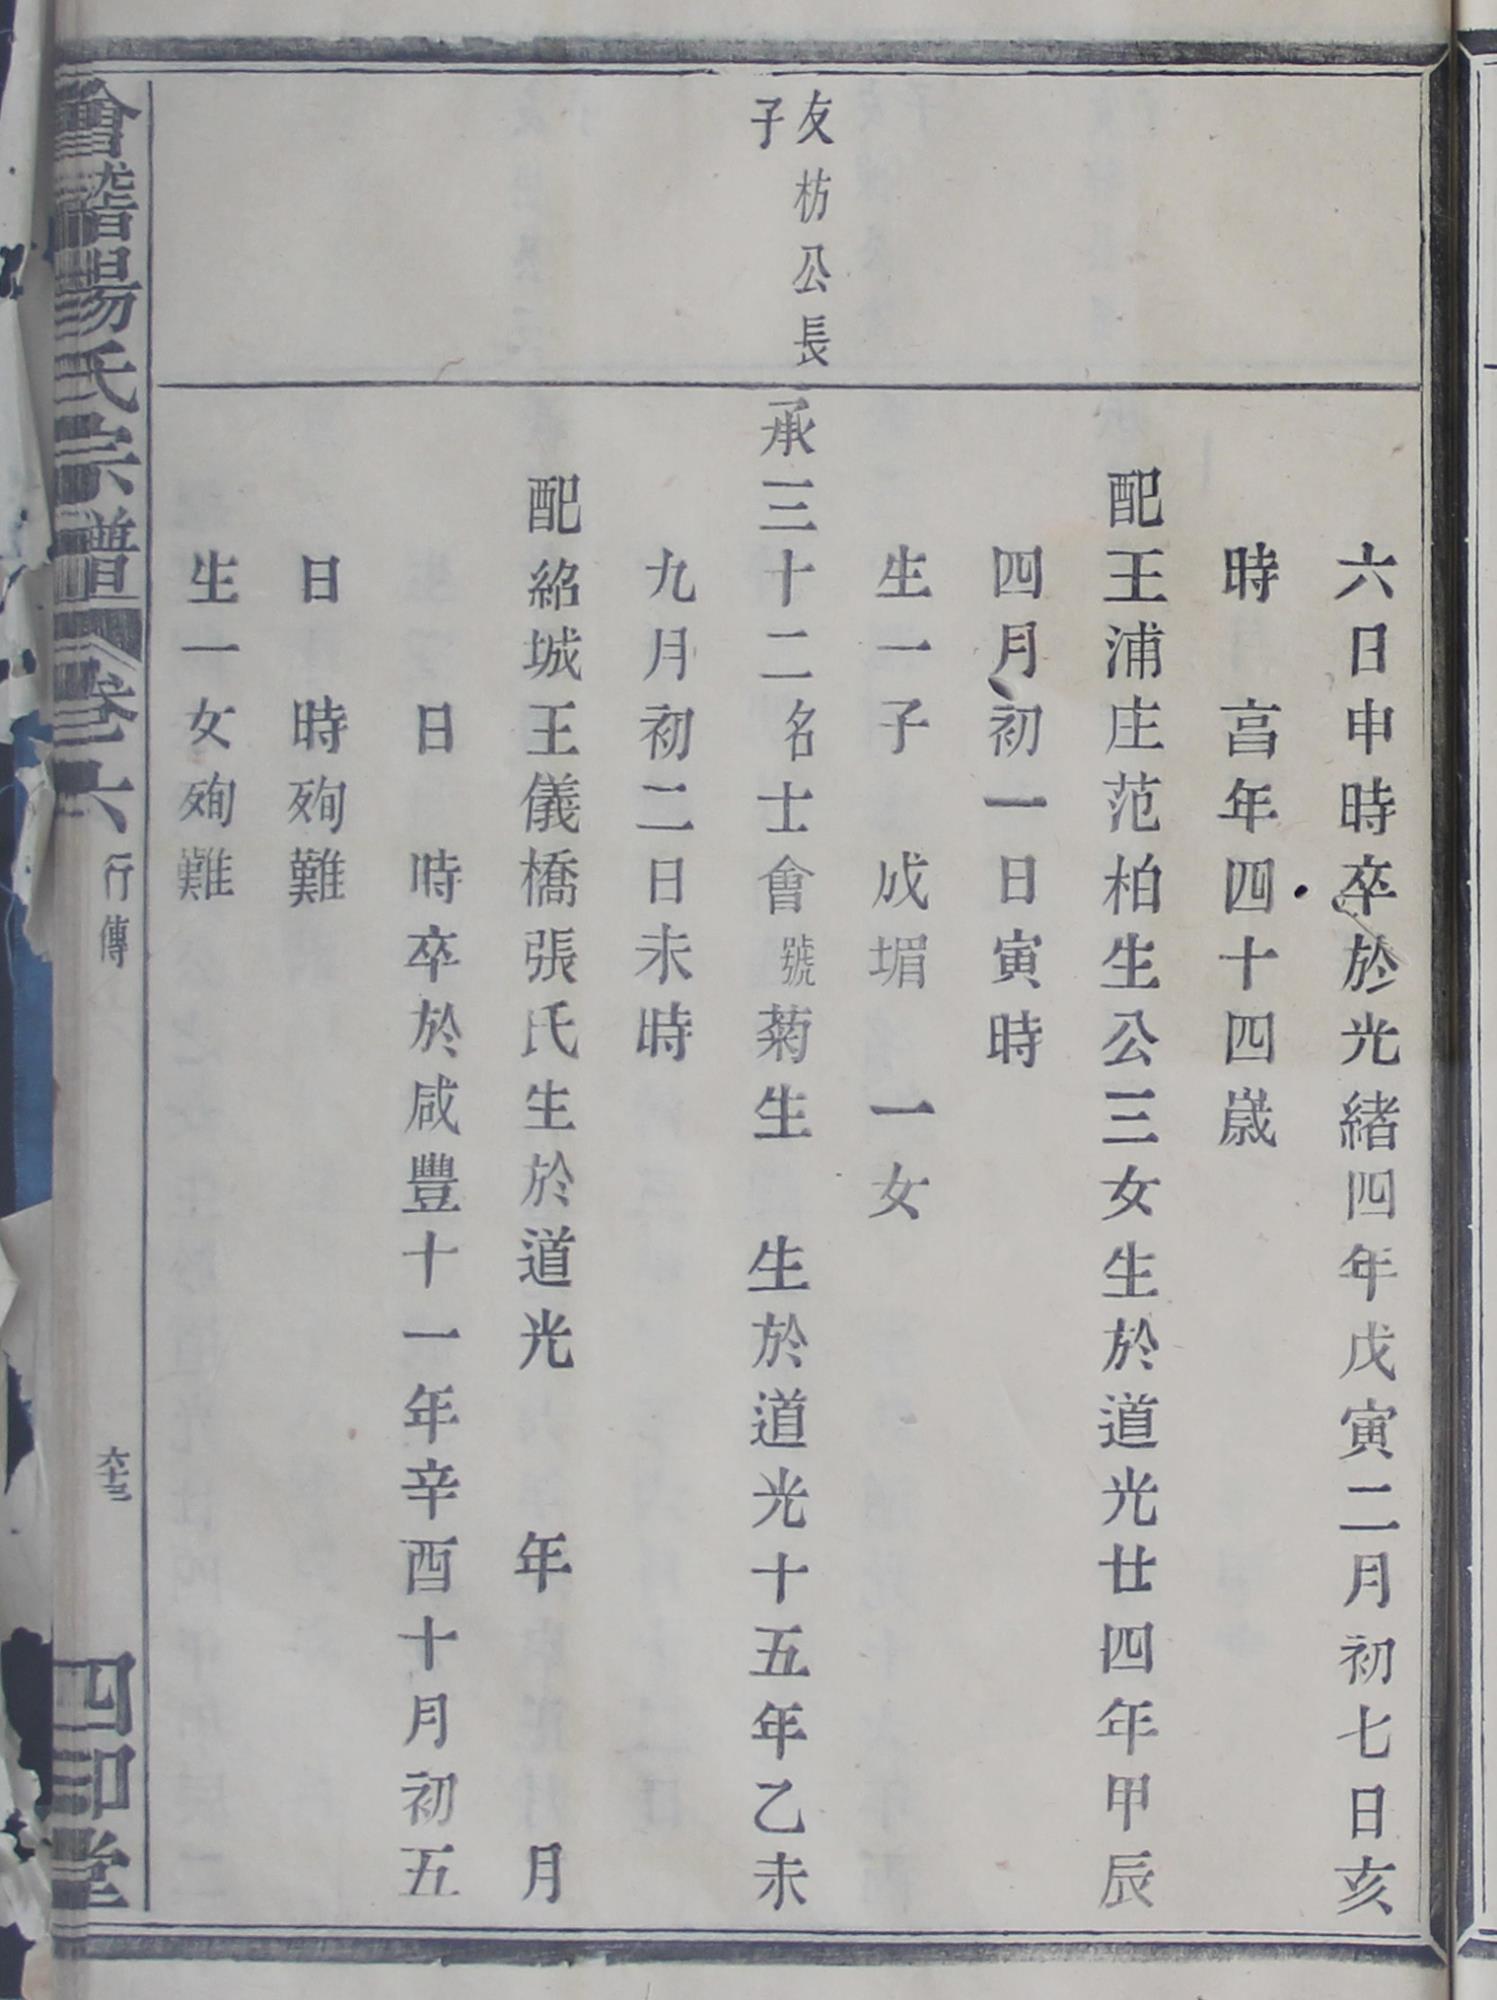 六日申時卒於光緒四年戊寅二月初七日亥
時　亯年四十四歲
配王浦庄范柏生公三女生於道光廿四年甲辰
四月初一日寅時
生一子　成堳　一女
友枋公長
子
承三十二名士會號菊生　生於道光十五年乙未
九月初二日未時
配紹城王儀橋張氏生於道光　年　月
日　時卒於咸豐十一年辛酉十月初五
日　時殉難
生一女殉難
會稽楊氏宗譜　卷六　行傳　六十三　四印堂